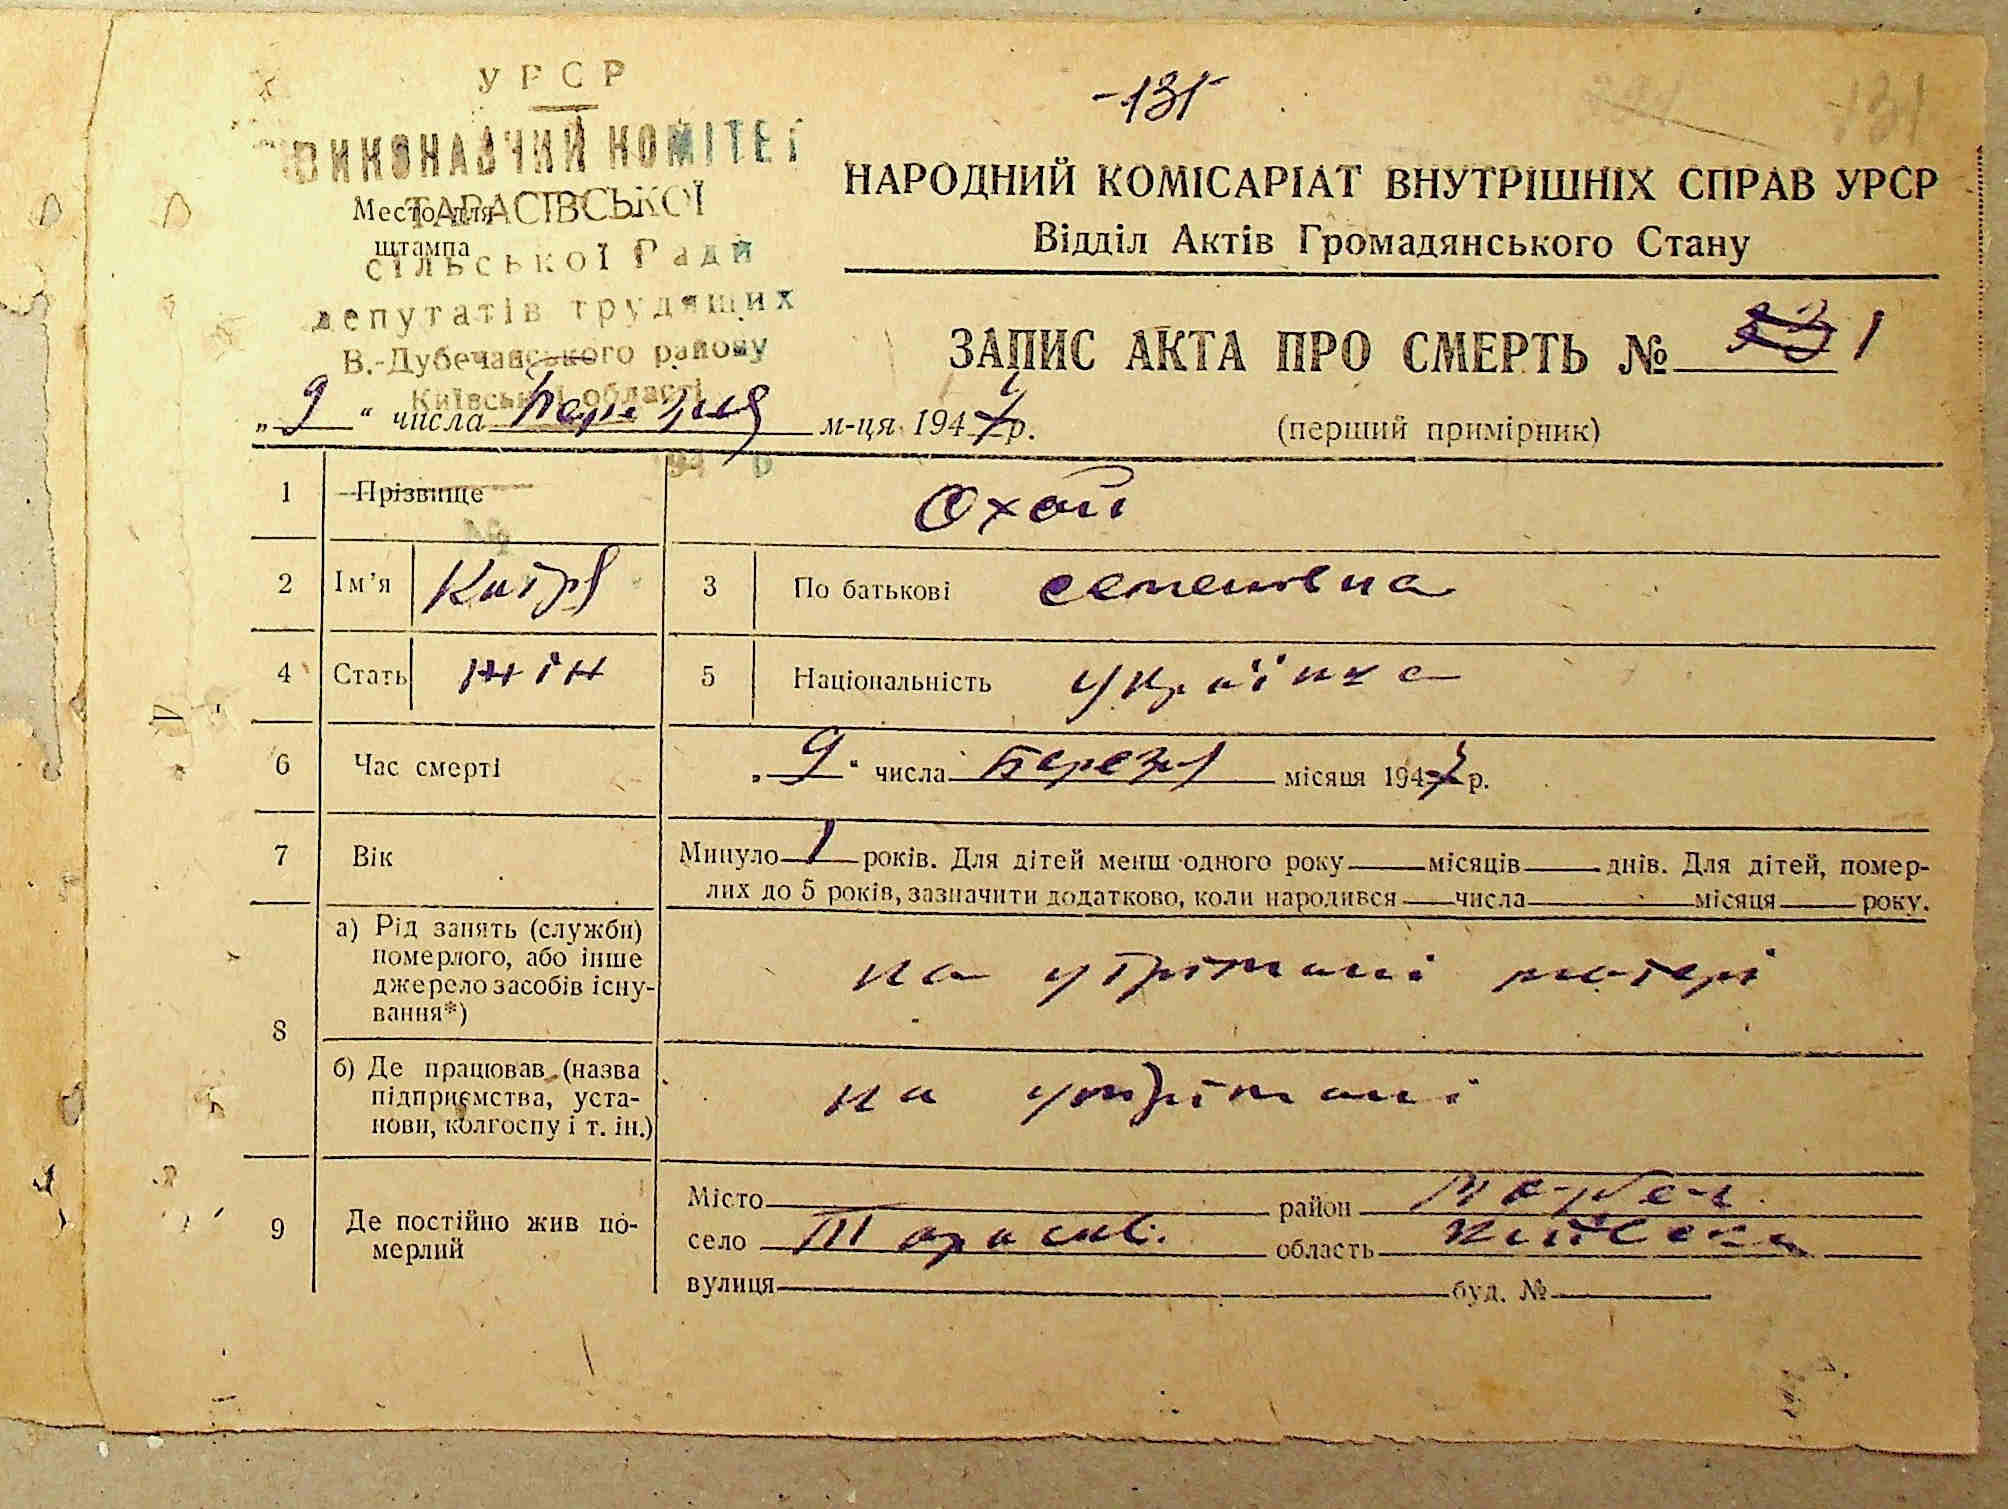 УРСР
ВИКОНАВЧИЙ КОМІТЕТ
ТАРАСІВСЬКОЇ
Место для
штампа
сільської Ради
депутатів трудящих
В.-Дубечанського району
Київської області
-131-
131
НАРОДНИЙ КОМІСАРІАТ ВНУТРІШНІХ СПРАВ УРСР
Відділ Актів Громадянського Стану
ЗАПИС АКТА ПРО СМЕРТЬ № 1
„9“ числа березня м-ця 194 р.
(перший примірник)
1 Прізвище Охой
2 Ім'я 3 По батькові семеновна
4 Стать жін 5 Національність українка
6 Час смерті „9“ числа березня місяця 194 р.
7 Вік Минуло 1 років. Для дітей менш одного року місяців днів. Для дітей, помер-
лих до 5 років, зазначити додатково, коли народився числа місяця року.
8 а) Рід занять (служби)
померлого, або інше
джерело засобів існу-
вання*)
на утрімані матері
б) Де працював (назва
підприємства, уста-
нови, колгоспу і т. ін.)
на утрімані
9 Де постійно жив по-
мерлий
Місто район
село Тарасів. область
вулиця буд. №